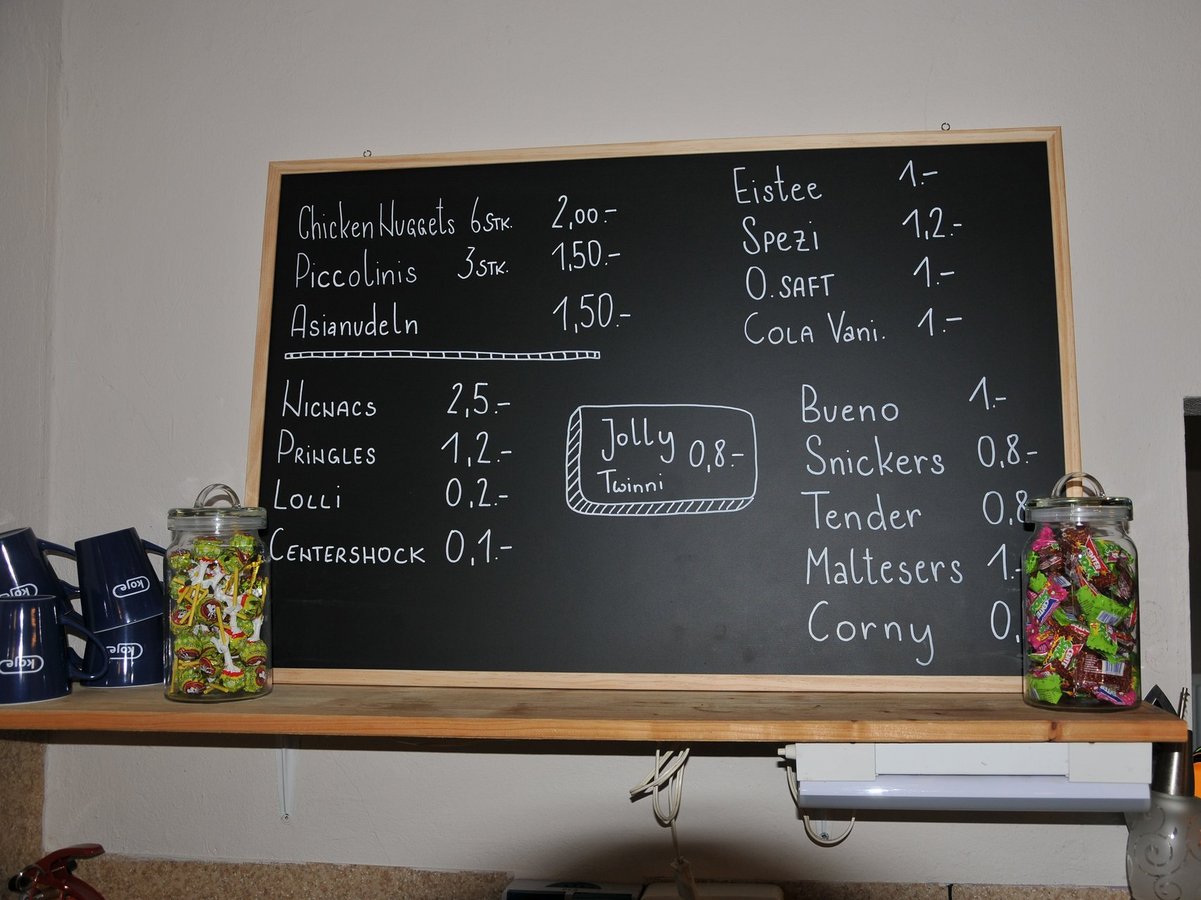 Chicken Nuggets 6 STK. 2,00.-
Piccolinis 3 STK. 1,50.-
Asianudeln 1,50.-
NICNACS 2,5.-
PRINGLES 1,2.-
LOLLI 0,2.-
CENTERSHOCK 0,1.-
Jolly 0,8.-
Twinni
Eistee 1.-
Spezi 1,2.-
O.SAFT 1.-
COLA Vani. 1.-
Bueno 1.-
Snickers 0,8.-
Tender 0,8
Maltesers 1.-
Corny 0,
koje
koje
koje
koje